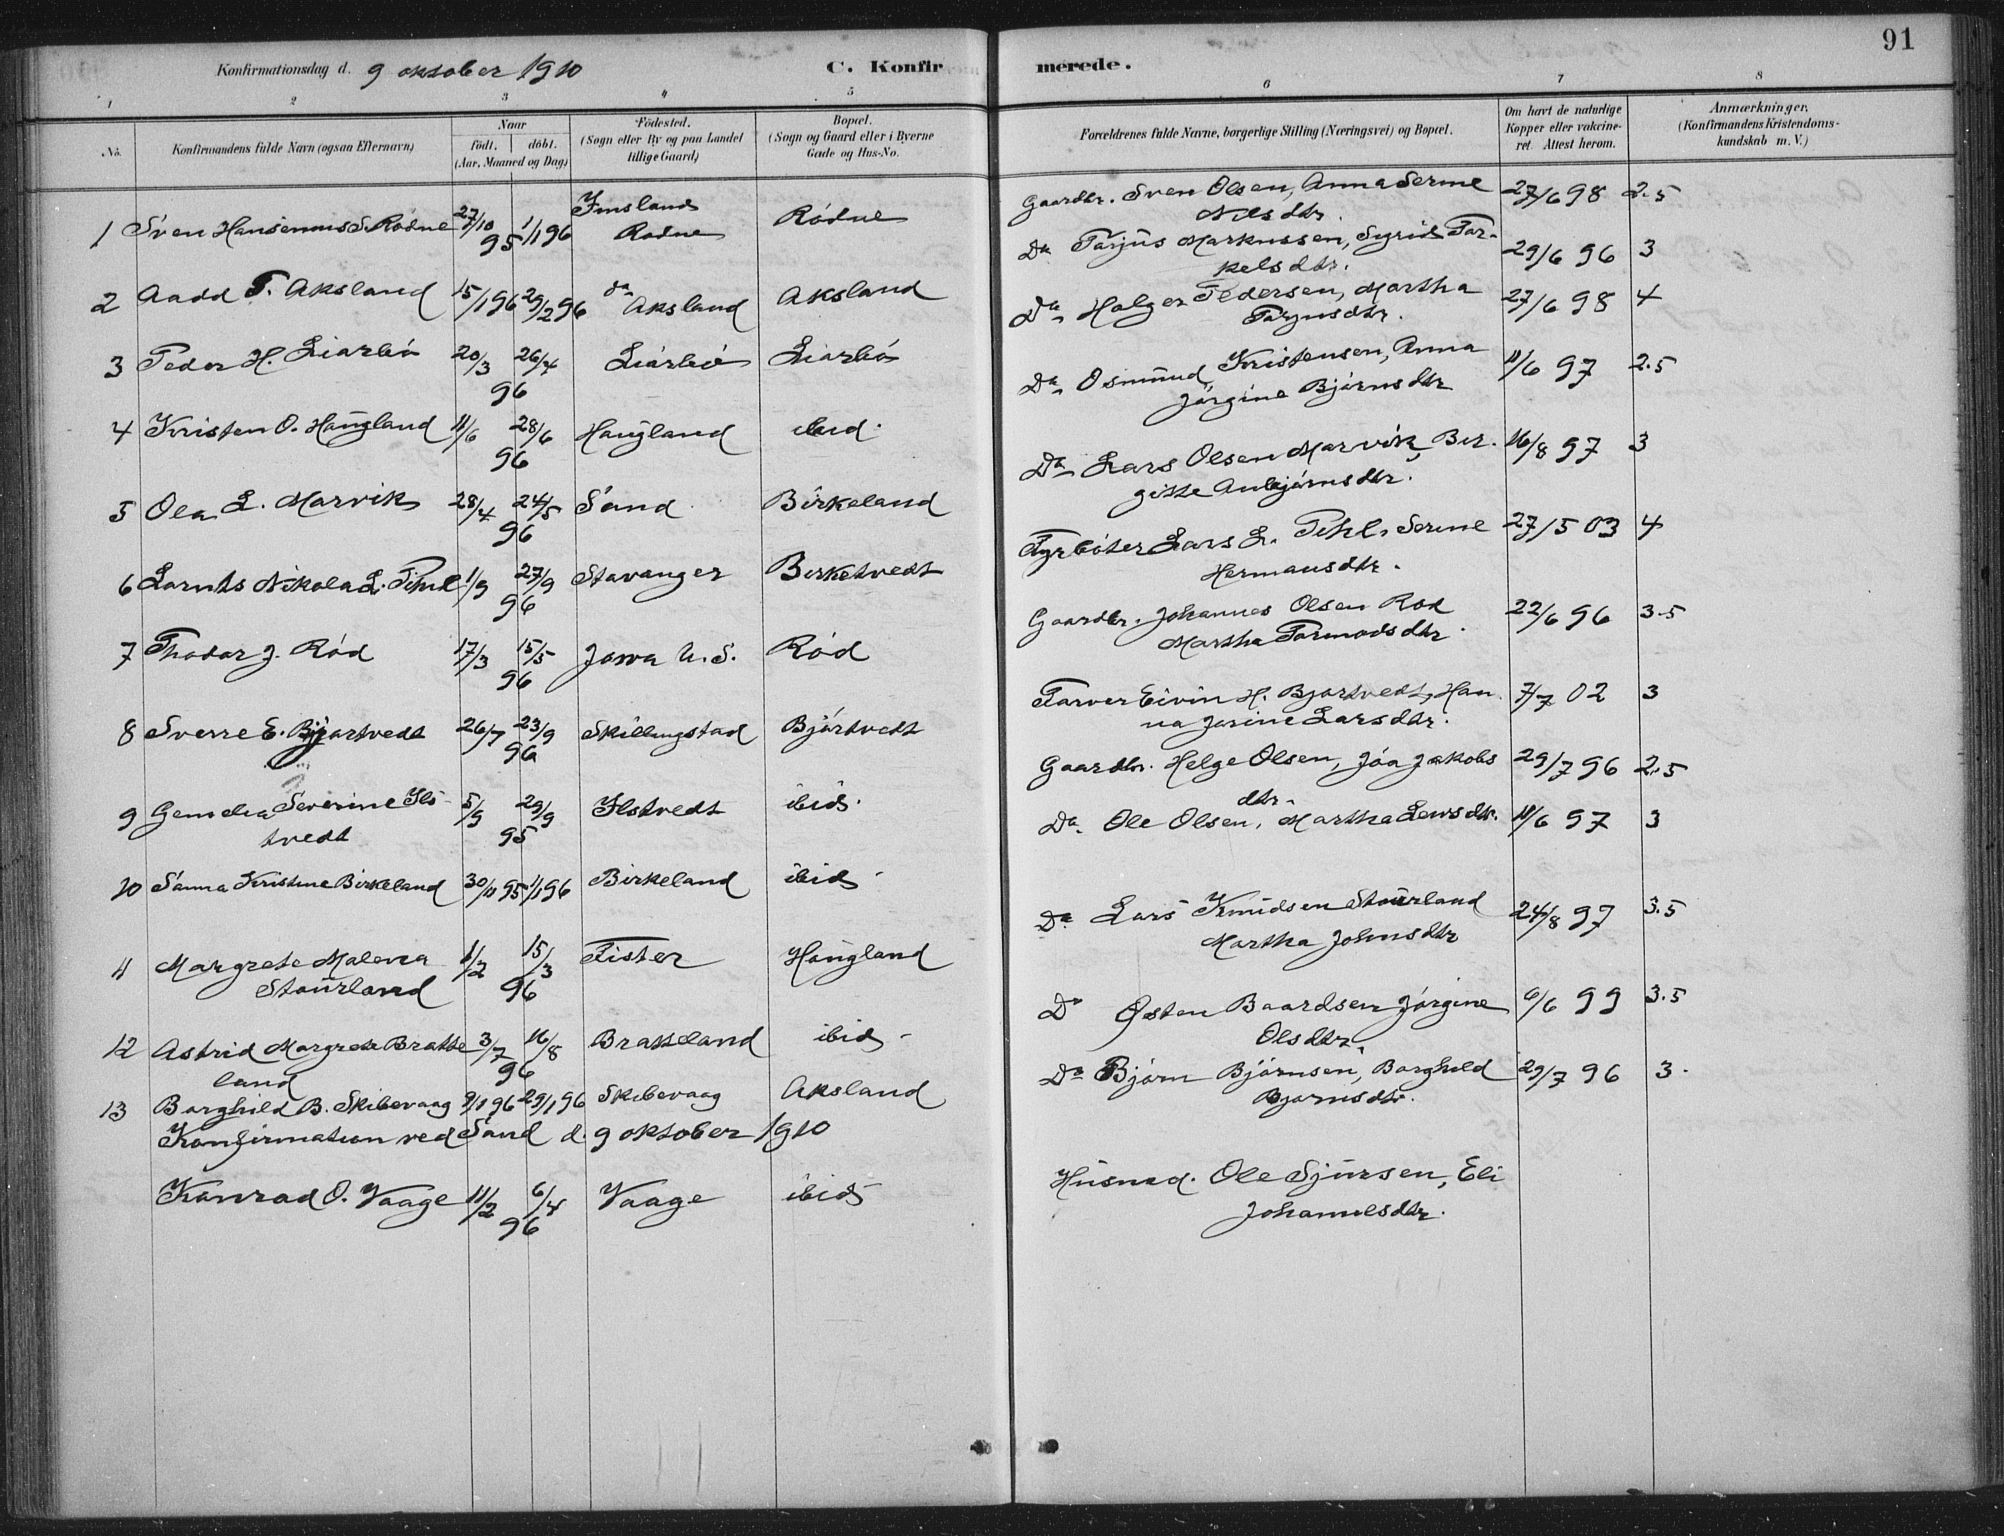 91
Konfirmationsdag d. 9 oktober 1910
C. Konfir merede.
1 2 3 4 5 6 7 8
No. Konfirmandens fulde Navn (ogsaa Efternavn)
Naar
födt. döbt.
(Aar, Maaned og Dag)
Födested.
(Sogn eller By og paa Landet
tillige Gaard)
Bopæl.
(Sogn og Gaard eller i Byerne
Gade og Hus-No.
Forældrenes fulde Navne, borgerlige Stilling (Næringsvei) og Bopæl.
Om havt de naturlige
Kopper eller vakcine-
ret. Attest herom.
Anmærkninger.
(Konfirmandens Kristendoms-
kundskab m. V.)
1 Sven Hansenius S. Rødne 27/10 95 1/1 96 Imsland Rødne Rødne Gaardbr. Sven Olsen, Anna Serine 27/6 98 2.5
Nilsdtr.
2 Aadd T. Aksland 15/1 96 29/2 96 do Aksland Aksland Do Tarjus Markussen, Syrid Tor- 29/6 96 3
kelsdtr.
3 Peder H. Liarbö 20/3 26/4 96 Liarbö Liarbö Do Holger Pedersen, Martha 27/6 98 4
Tarjusdtr.
4 Kristen O. Haugland 11/6 28/6 96 Haugland ibid. Do Osmund Kristensen, Anna 11/6 97 2.5
Jørgine Bjørnsdtr
5 Ola L. Marvik 28/4 24/5 96 Sand Birkeland Do Lars Olsen Marvik, Bir- 16/8 97 3
gitte Anbjørnsdtr.
6 Nikola L. Pihl 1/9 27/9 96 Stavanger Birketvedt Fyrböter Lars L. Pihl, Serine 27/5 03 4
Hermansdtr.
7 Thodor J. Rød 17/3 15/5 96 Jowa U. S. Rød Gaardbr. Johannes Olsen Rød 22/6 96 3.5
Martha Tormodsdtr.
8 Sverre E. Bjørtvedt 26/7 23/9 96 Skillingstad Bjørtvedt Farver Eivin H. Bjørtvedt, Han- 7/7 02 3
na Josine Larsdtr.
9 Severine Ils- 5/9 29/9 95 Ilstvedt ibid. Gaardbr. Helge Olsen, Jóa Jakobs 29/7 96 2.5
tvedt dtr.
10 Sanna Kristine Birkeland 30/11 95 1/1 96 Birkeland ibid. Do. Ole Olsen, Martha Larsdtr. 11/6 97 3
11 Margrete Malena 1/2 15/3 96 Fister Haugland Do Lars Knudsen Staurland 24/8 97 3.5
Staurland Martha Johnsdtr
12 Astrid Margrete Bratte 3/7 16/8 96 Bratteland ibid. Do Østen Baardsen Jørgine 6/6 99 3.5
land Olsdtr.
13 Borghild B. Skibevaag 9/1 96 29/1 96 Skibevaag Aksland Do Bjørn Bjørnsen, Borghild 29/7 96 3.
Bjørnsdtr.
Konfirmation ved Sand d. 9 oktober 1910
Konrad O. Vaage 11/2 6/4 96 Vaage ibid. Husmd. Ole Sjursen, Eli
Johannesdtr.